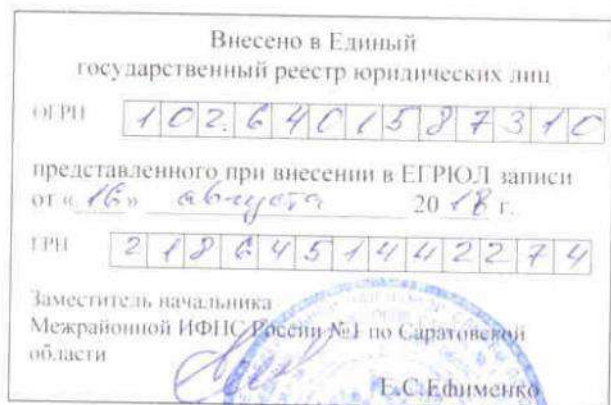 Внесено в Единый
государственный реестр юридических лиц
ОГРН 1026401587310
представленного при внесении в ЕГРЮЛ записи
от «16» августа 2018 г.
ГРН 2186451442274
Заместитель начальника
Межрайонной ИФНС России №1 по Саратовской
области
Е.С.Ефименко